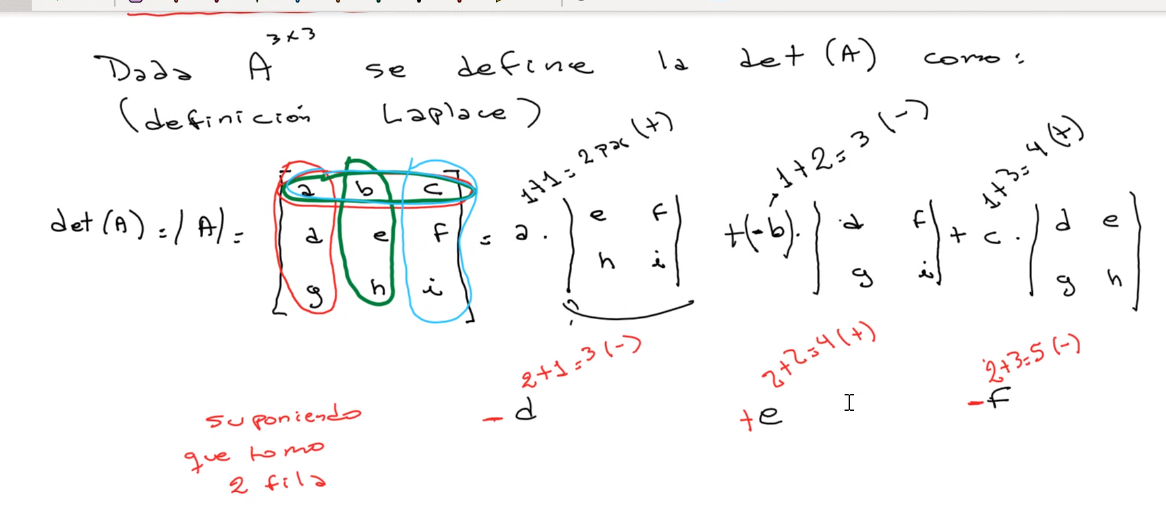 Dada A^3x3 se define la det (A) como:
(definición Laplace)
1+1=2 par (+) 1+2=3 (-) 1+3=4 (+)
det(A) = |A| = [a b c; d e f; g h i] = a . |e f; h i| +(-b). |d f; g i| + c . |d e; g h|
2+1=3 (-) 2+2=4 (+) 2+3=5 (-)
- d +e -f
suponiendo
que tomo
2 fila